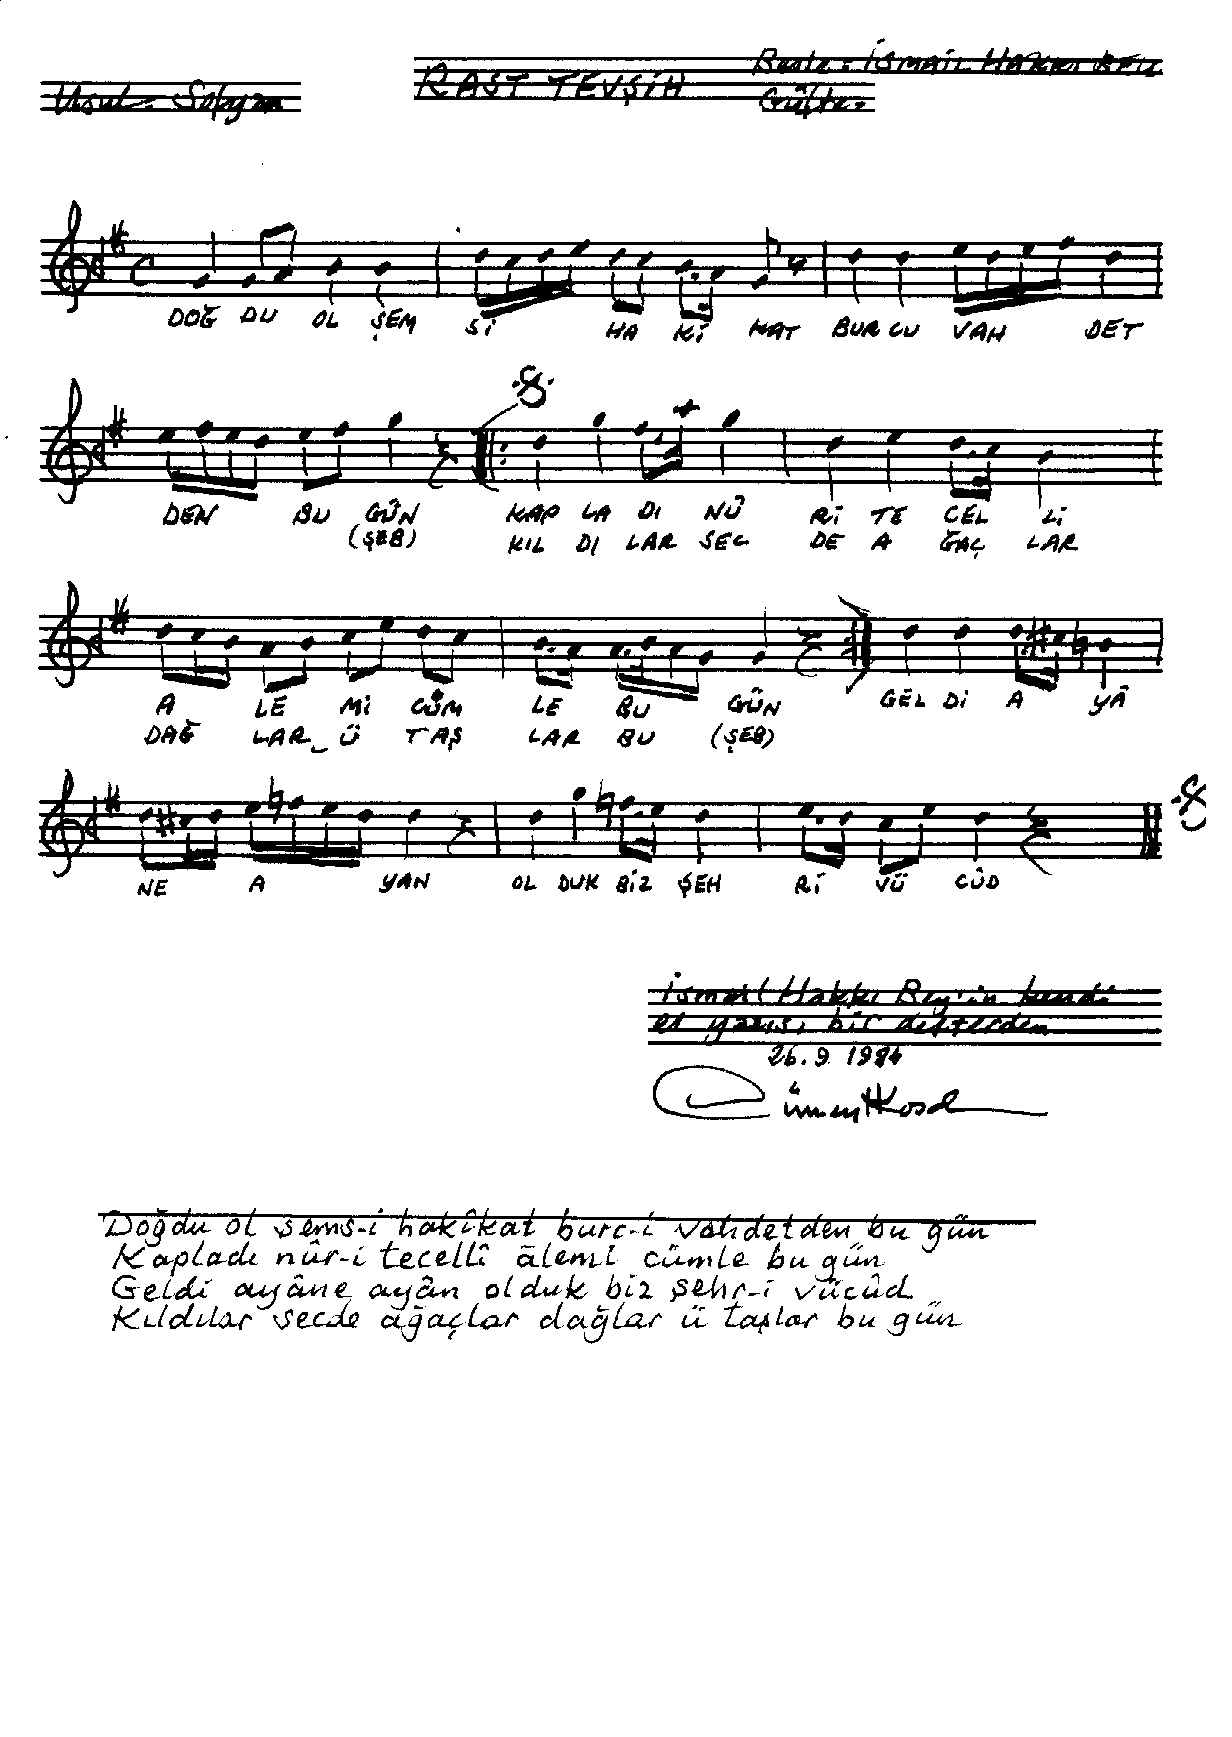 Usul : Sofyan
RAST TEVŞİH
Beste : İSMAİL HAKKI BEY
Güfte :
DOĞ DU OL ŞEM Sİ HA Kİ KAT BUR CU VAH DET
DEN BU GÜN KAP LA DI NÛ Rİ TE CEL Lİ
(ŞEB) KIL DI LAR SEC DE A ĞAÇ LAR
A LE Mİ CÜM LE BU GÜN GEL Dİ A YÂ
DAĞ LAR_Ü TAŞ LAR BU (ŞEB)
NE A YAN OL DUK BİZ ŞEH Rİ VÜ CÛD
İsmail Hakkı Bey'in kendi
el yazısı bir defterden
26.9.1984
Doğdu ol şems-i hakîkat burc-i vahdetden bu gün
Kapladı nûr-i tecellî âlemi cümle bu gün
Geldi ayâne ayân olduk biz şehr-i vücûd
Kıldılar secde ağaçlar dağlar ü taşlar bu gün